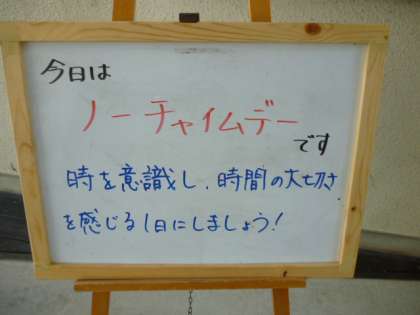 今日は
ノーチャイムデー
です
時を意識し、時間の大切さ
を感じる1日にしましょう!